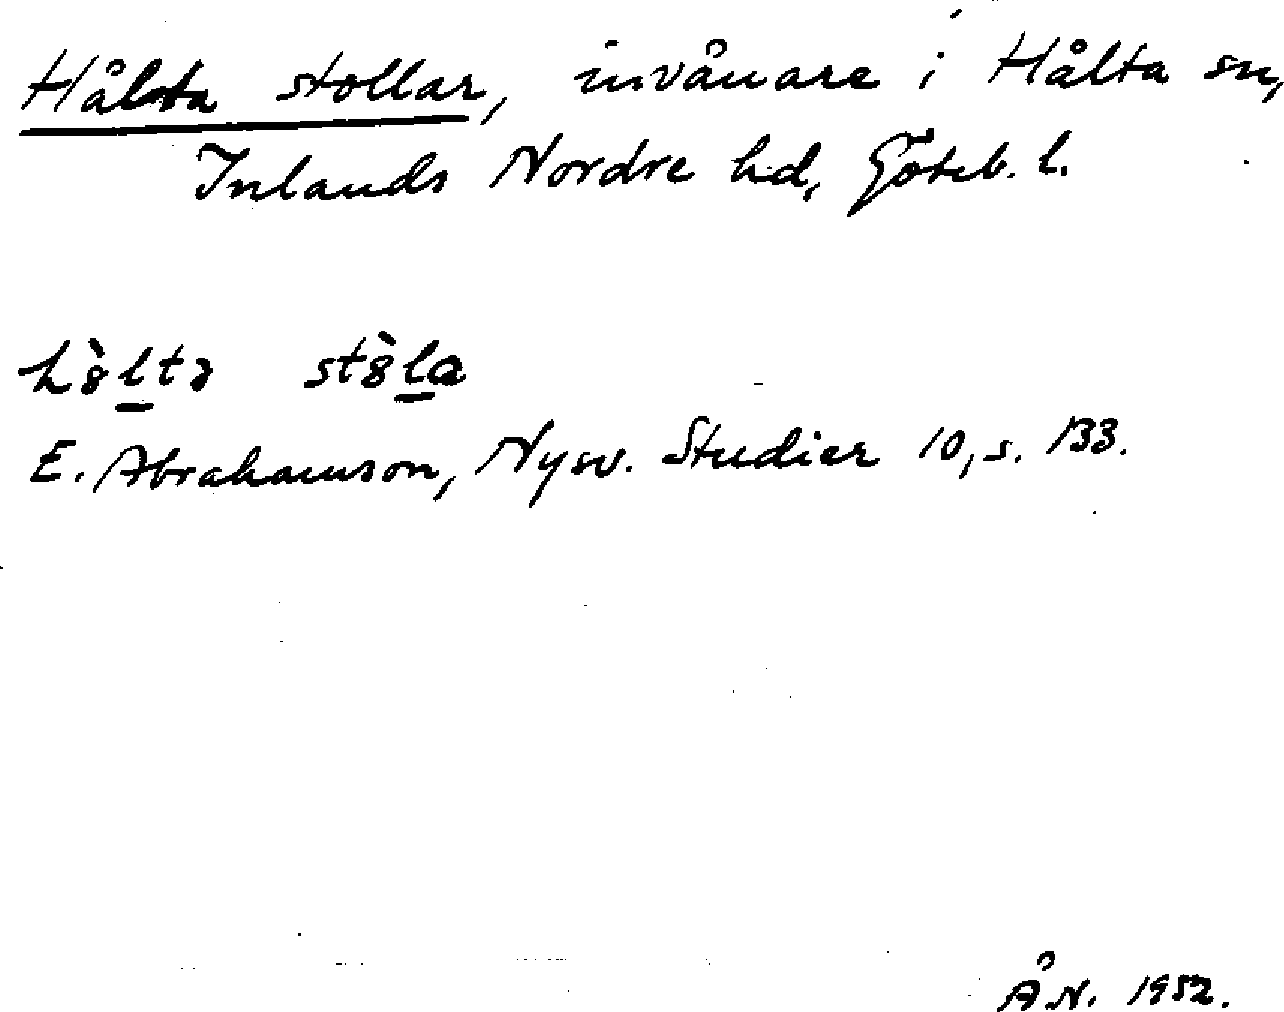 Hålta stollar, invånare i Hålta sn,
Inlands Nordre hd, Göteb. l.
h8̀ltə st8̀la
E. Abrahamson, Nysv. Studier 10, s. 133.
Å N. 1952.